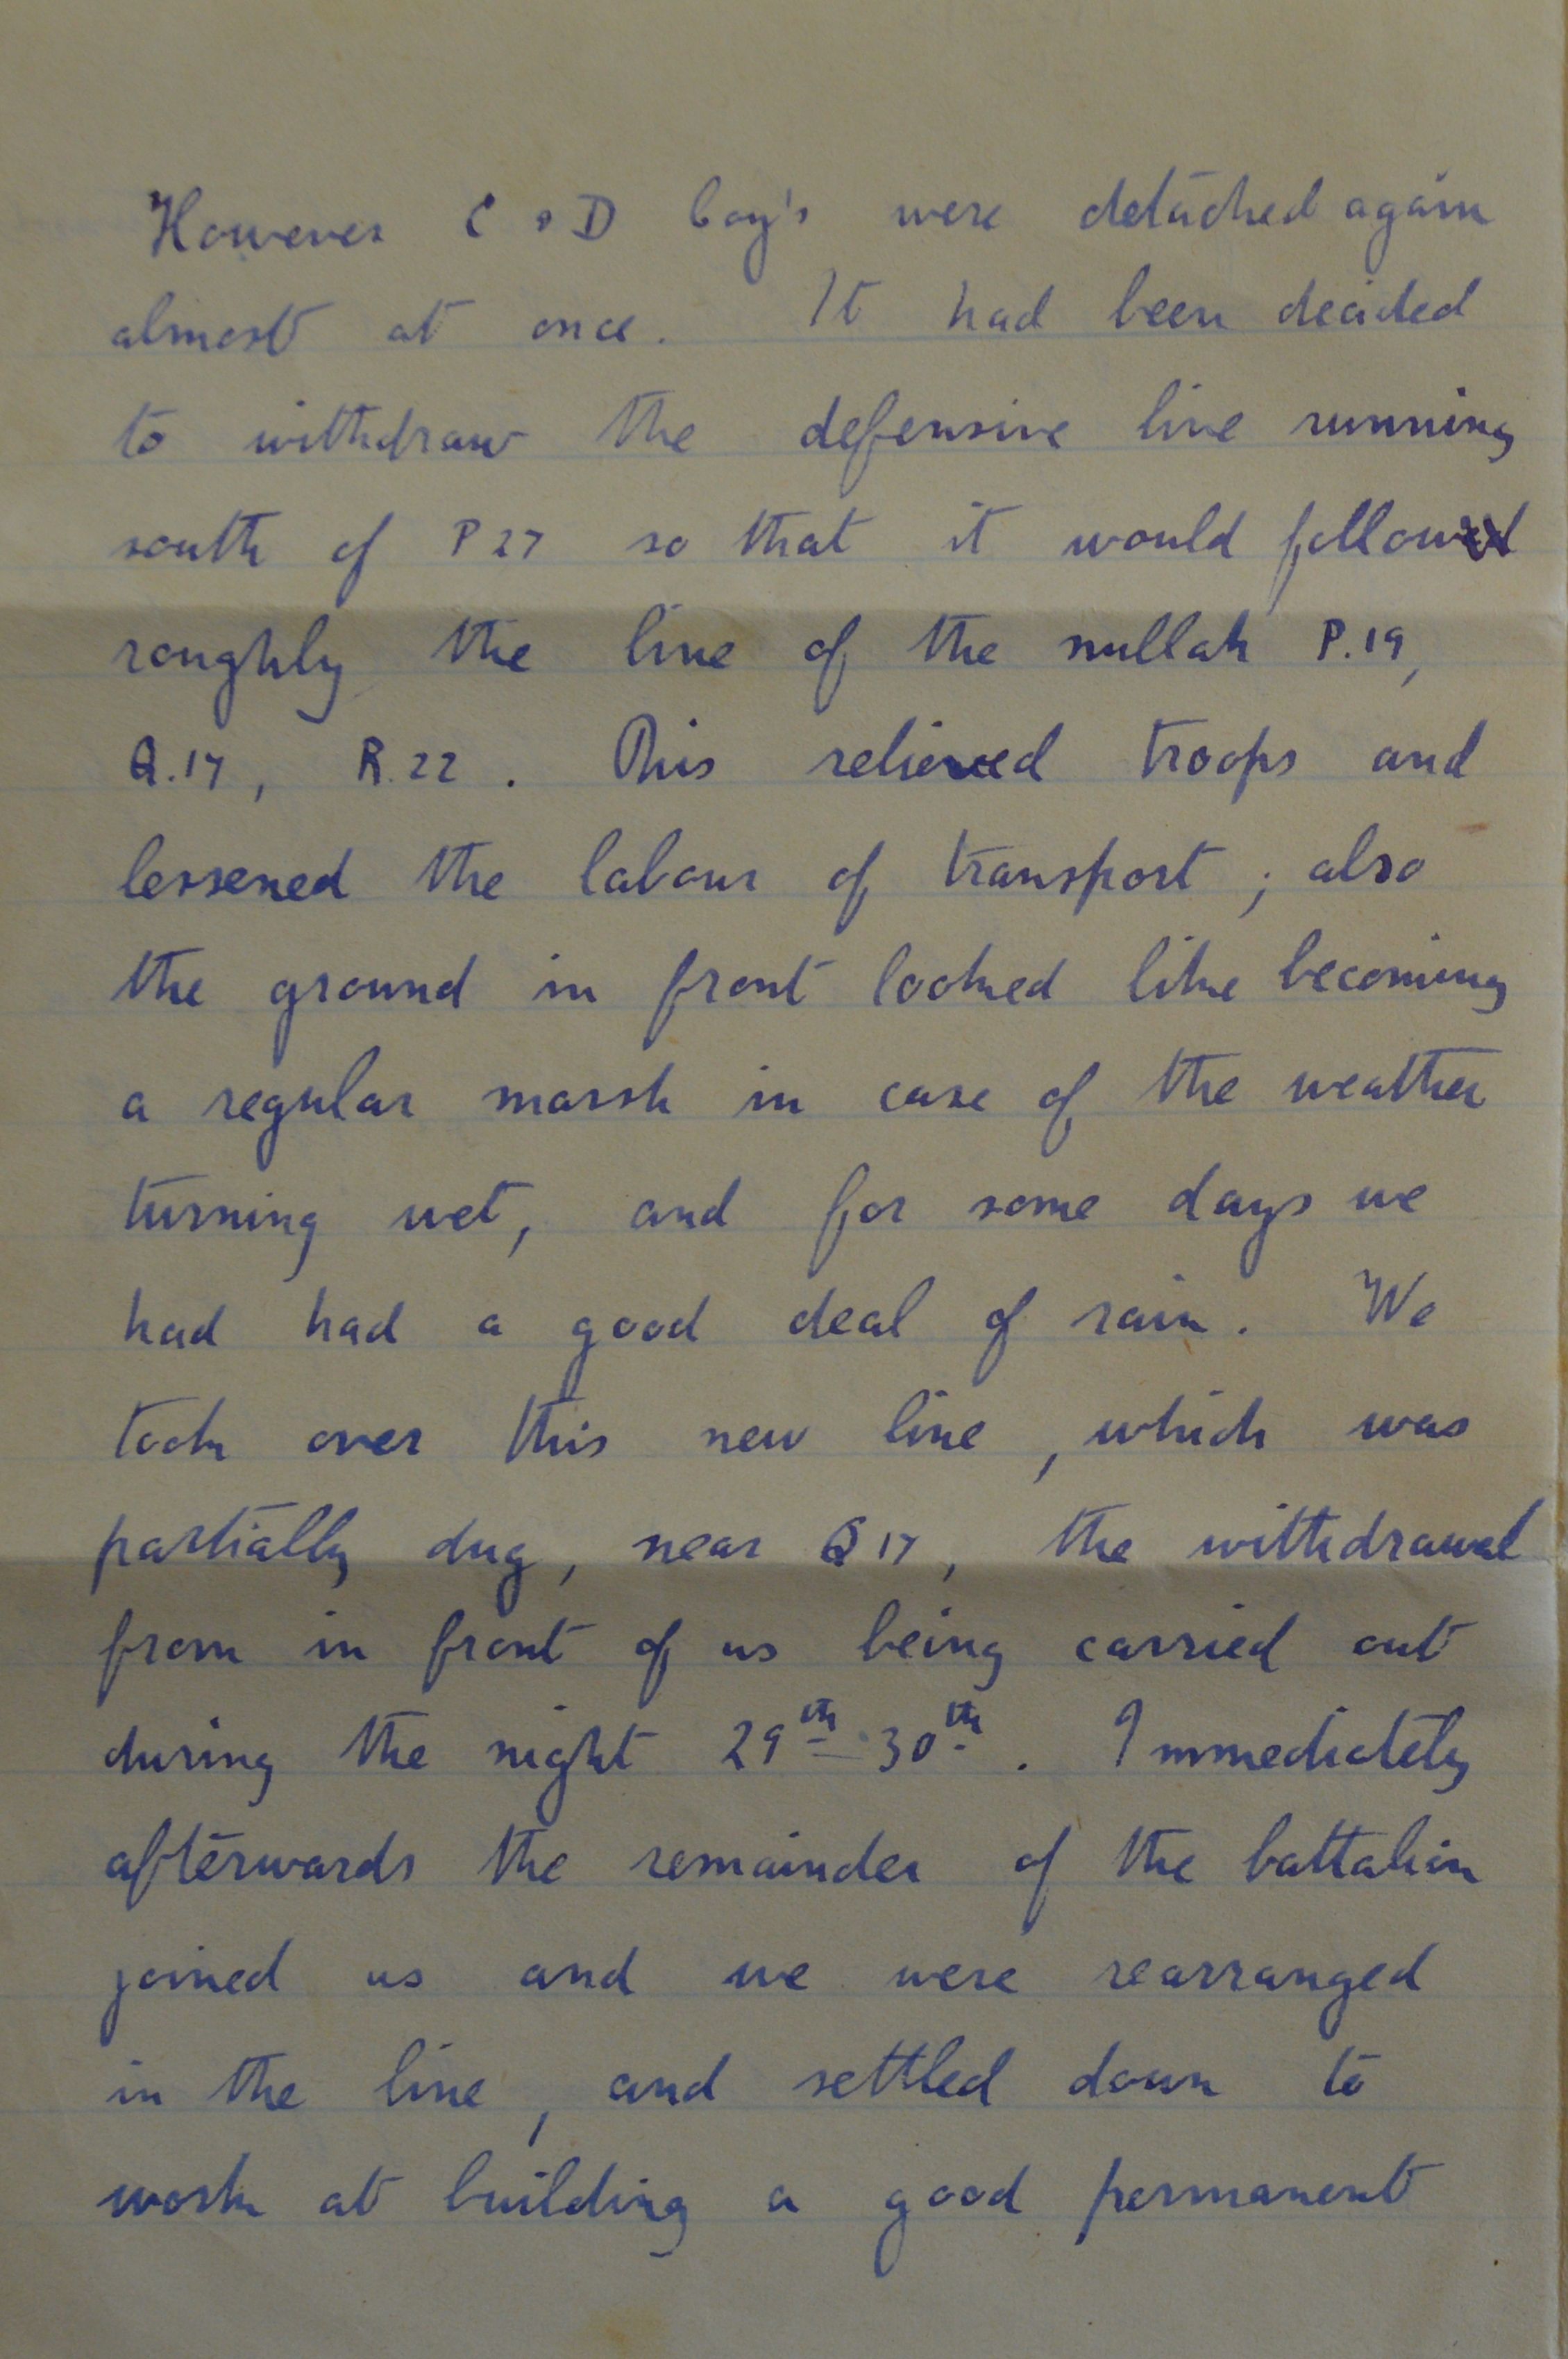 However C & D Coy's were detached again
almost at once. It had been decided
to withdraw the defensive line running
south of P 27 so that it would follow
roughly the line of the nullah P.19,
Q.17, R.22. This relieved troops and
lessened the labour of transport; also
the ground in front looked like becoming
a regular marsh in case of the weather
turning wet, and for some days we
had had a good deal of rain. We
took over this new line, which was
partially dug, near Q 17, the withdrawal
from in front of us being carried out
during the night 29th-30th. Immediately
afterwards the remainder of the battalion
joined us and we were rearranged
in the line, and settled down to
work at building a good permanent